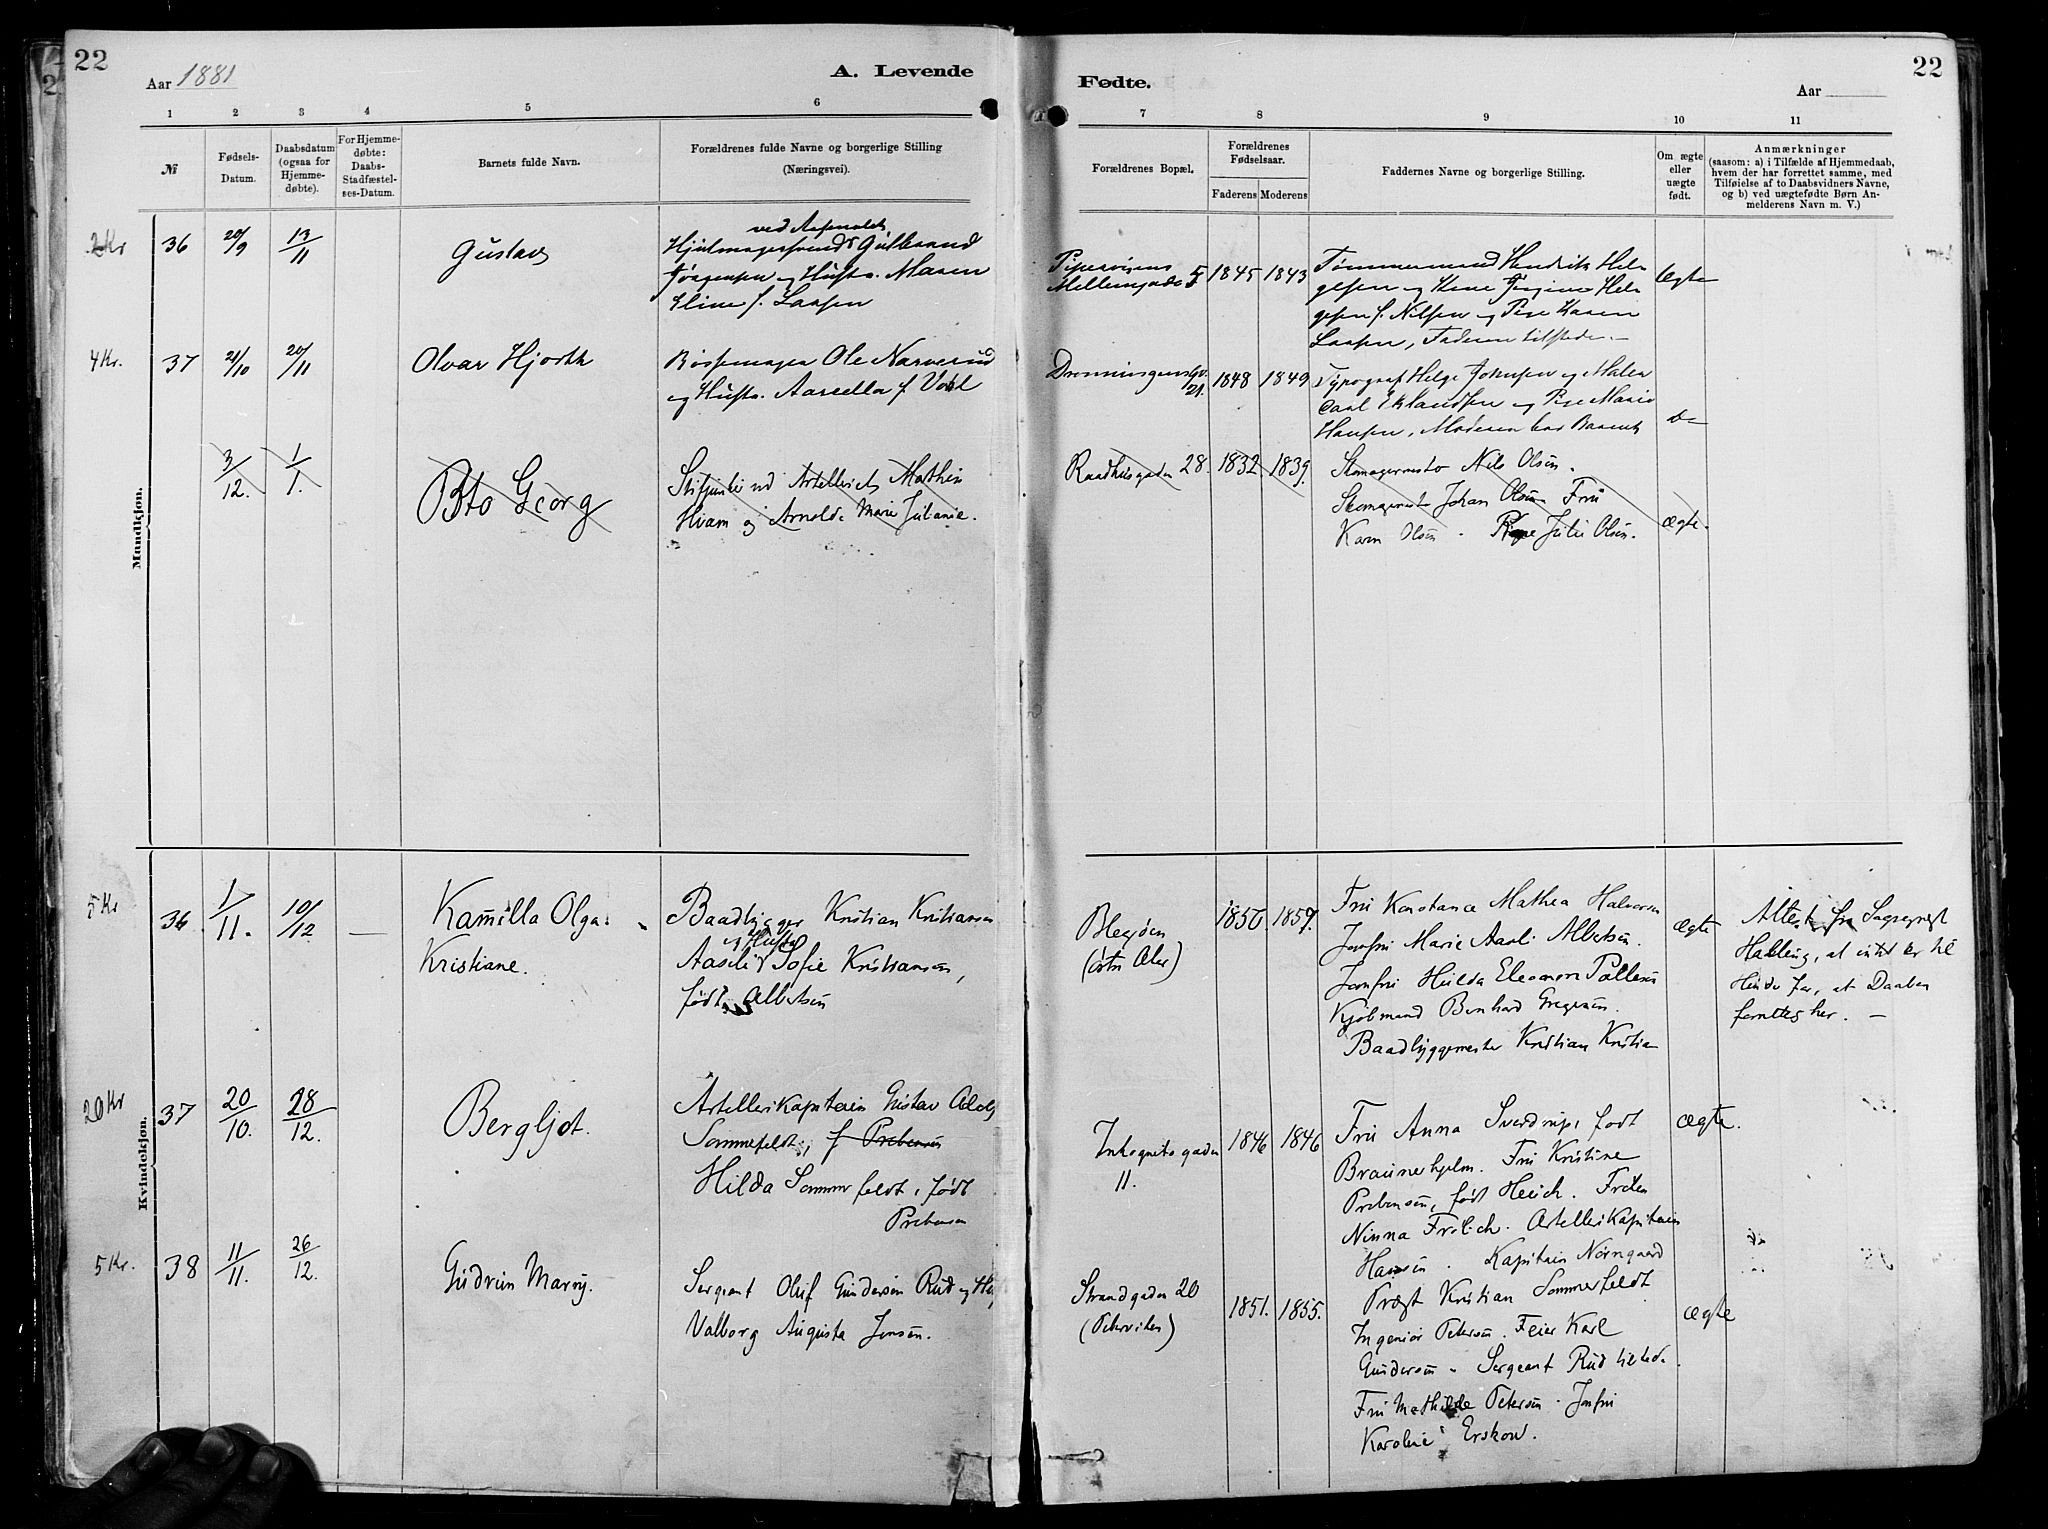 22
Aar 1881
A. Levende
Fødte.
Aar
22
1 2 3 4 5 6 7 8 9 10 11
№
Fødsels-
Datum.
Daabsdatum
(ogsaa for
Hjemme-
døbte).
For Hjemme-
døbte:
Daabs-
Stadfæstel-
ses-Datum.
Barnets fulde Navn.
Forældrenes fulde Navne og borgerlige Stilling
(Næringsvei).
Forældrenes Bopæl.
Forældrenes
Fødselsaar.
Faderens Moderens
Faddernes Navne og borgerlige Stilling.
Om ægte
eller
uægte
født.
Anmærkninger
(saasom: a) i Tilfælde af Hjemmedaab,
hvem der har forrettet samme, med
Tilføielse af to Daabsvidners Navne,
og b) ved uægtefødte Børn An-
melderens Navn m. V.)
Mandkjøn.
2 Kr
36
20/9
13/11
Gustav
ved
Hjulmagersvend Gulbrand
Jørgensen og Hustr. Maren
Line f. Larsen
Pipervigens
Mellemgade 5
1845 1843
Tømmermand Hendrik Hel-
gesen og Kone Hel-
gesen f. Nilsen og Pige Karen
Larsen, Faderen tilstede.
Ægte
4 Kr.
37
21/10
20/11
Olvar Hjorth
Børsemager Ole Narverud
og Hustr. f.
Dronningens Gd.
21.
1848 1849
Typograf Helge Johnsen og Maler
Carl Eklandsen og Pige Marie
Hansen, Moderen bar Barnet
do
3/12.
1/1.
Otto Georg
ved Artelleriet Mathias
Hvam og Arnolde Marie Juliane.
Raadhusgaden 28.
1832 1839.
Skomagermester Nils Olsen.
Skomagermester Johan Olsen Fru
Karen Olsen. Pige Julie Olsen.
ægte.
Kvindekjøn.
5 Kr
36
1/11.
10/12
Kamilla Olga
Kristiane.
Baadbygger Kristian Kristiansen
og Hustr
Sofie Kristiansen,
født Albertsen
Blegøen
(østre Aker)
1856. 1859.
Fru Konstance Mathea Halvorsen
Jomfru Marie Albertsen.
Jomfru Hulda Eleonore Pallesen
Kjøbmand Bernhard Gregersen.
Baadbyggemester Kristian Kristian
Ægte
Attest fra Sogneprest
Halling, at intet er til
Hinder for, at Daaben
forrettes her. —
20 Kr
37
20/10.
28/12.
Bergljot.
Artellerikaptein Gustav Adolf
Sommerfeldt, f Prebensen
Hilda Sommerfeldt, født
Prebensen
Inkognitogaden
11.
1846 1846
Fru Anna Sverdrup, født
Braunerhjelm. Fru Kristine
Prebensen, født Heich. Frøken
Ninna Frølich. Artellerikaptein
Hansen. Kaptein Nørregaard
Prøst Kristian Sommerfeldt
Ægte.
5 Kr.
38
11/11.
26/12.
Gudrun Marry.
Sergeant Oluf Gundersen Rud og H
Valborg Augusta Jensen.
Strandgaden 20
(Pipervigen)
1851. 1855.
Ingeniør Petersen. Feier Karl
Gundersen. Sergeant Rud tilstede.
Fru Mathilde Petersen. Jomfru
Karoline Erskow.
Ægte